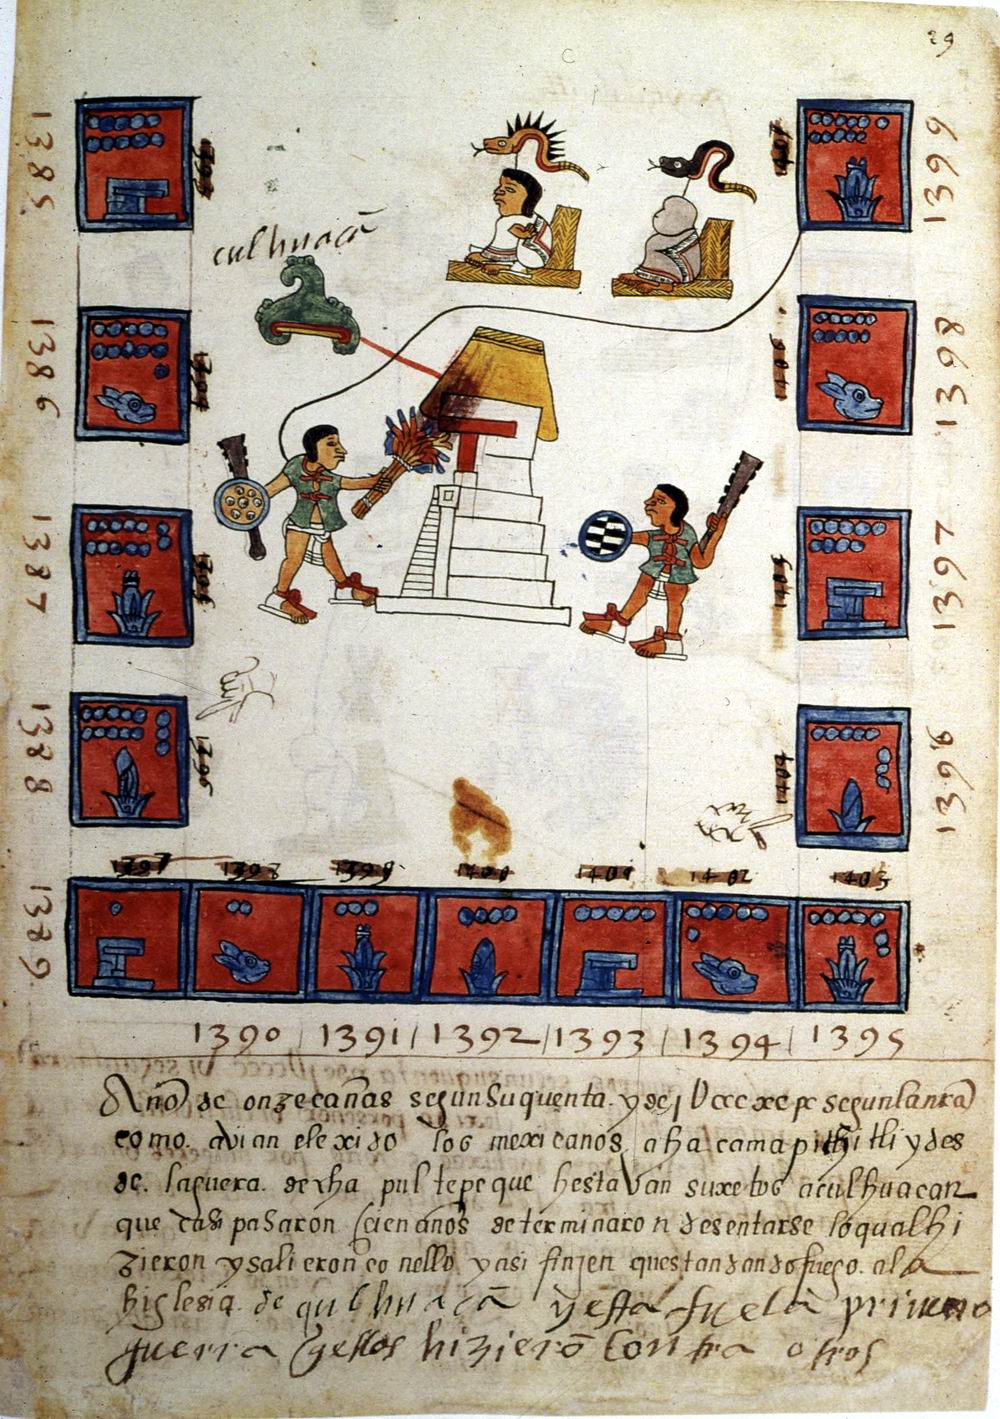 29
culhuacã
1385
1386
1387
1388
1389
1390
1391
1392
1393
1394
1395
1396
1397
1398
1399
1397
1398
1399
1400
1401
1402
1403
1404
1405
Año de onze cañas segun su quenta y de segun la nra
como avian elexido los mexicanos a ha camapichitli y des
de la guera de cha pultepeque hestavan suxetos a culhuacan
que casi pasaron cien años determinaron desentarse lo qual hi
zieron y salieron co nello y asi finjen questan dando fuego a la
higlesia de qulhuacã y esta fue la primera
guerra q estos hizierõ contra otros